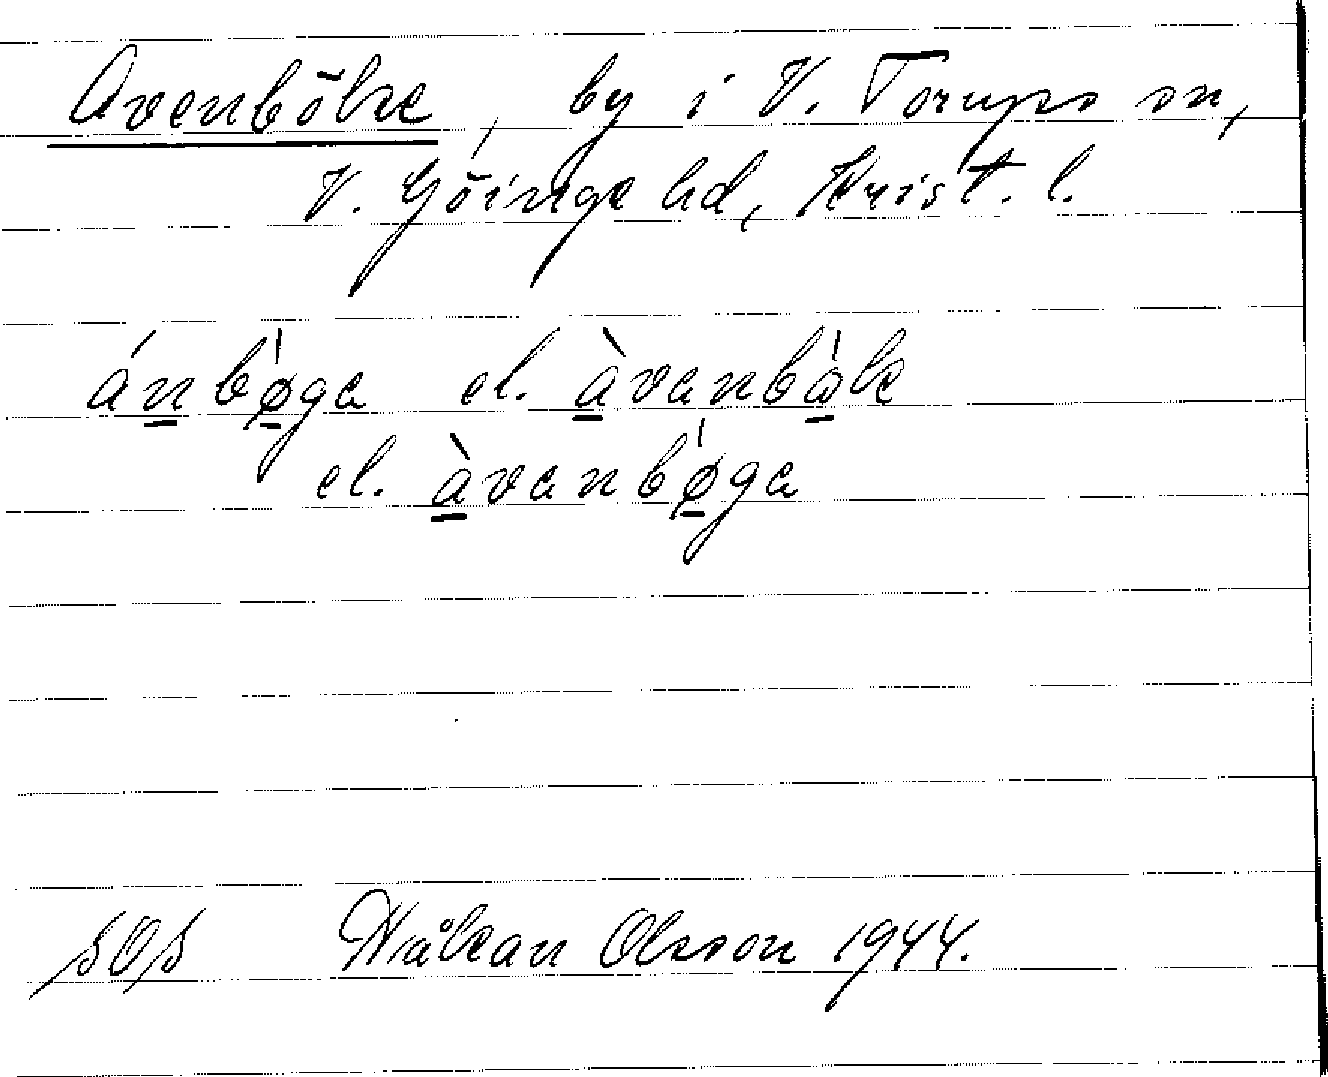 Avenböke, by i V. Torups sn,
V. Göinge hd, Krist. l.
ánbø̀ga el. àvanbàk
el. àvanbø̀ga
SOS Håkan Olsson 1944.